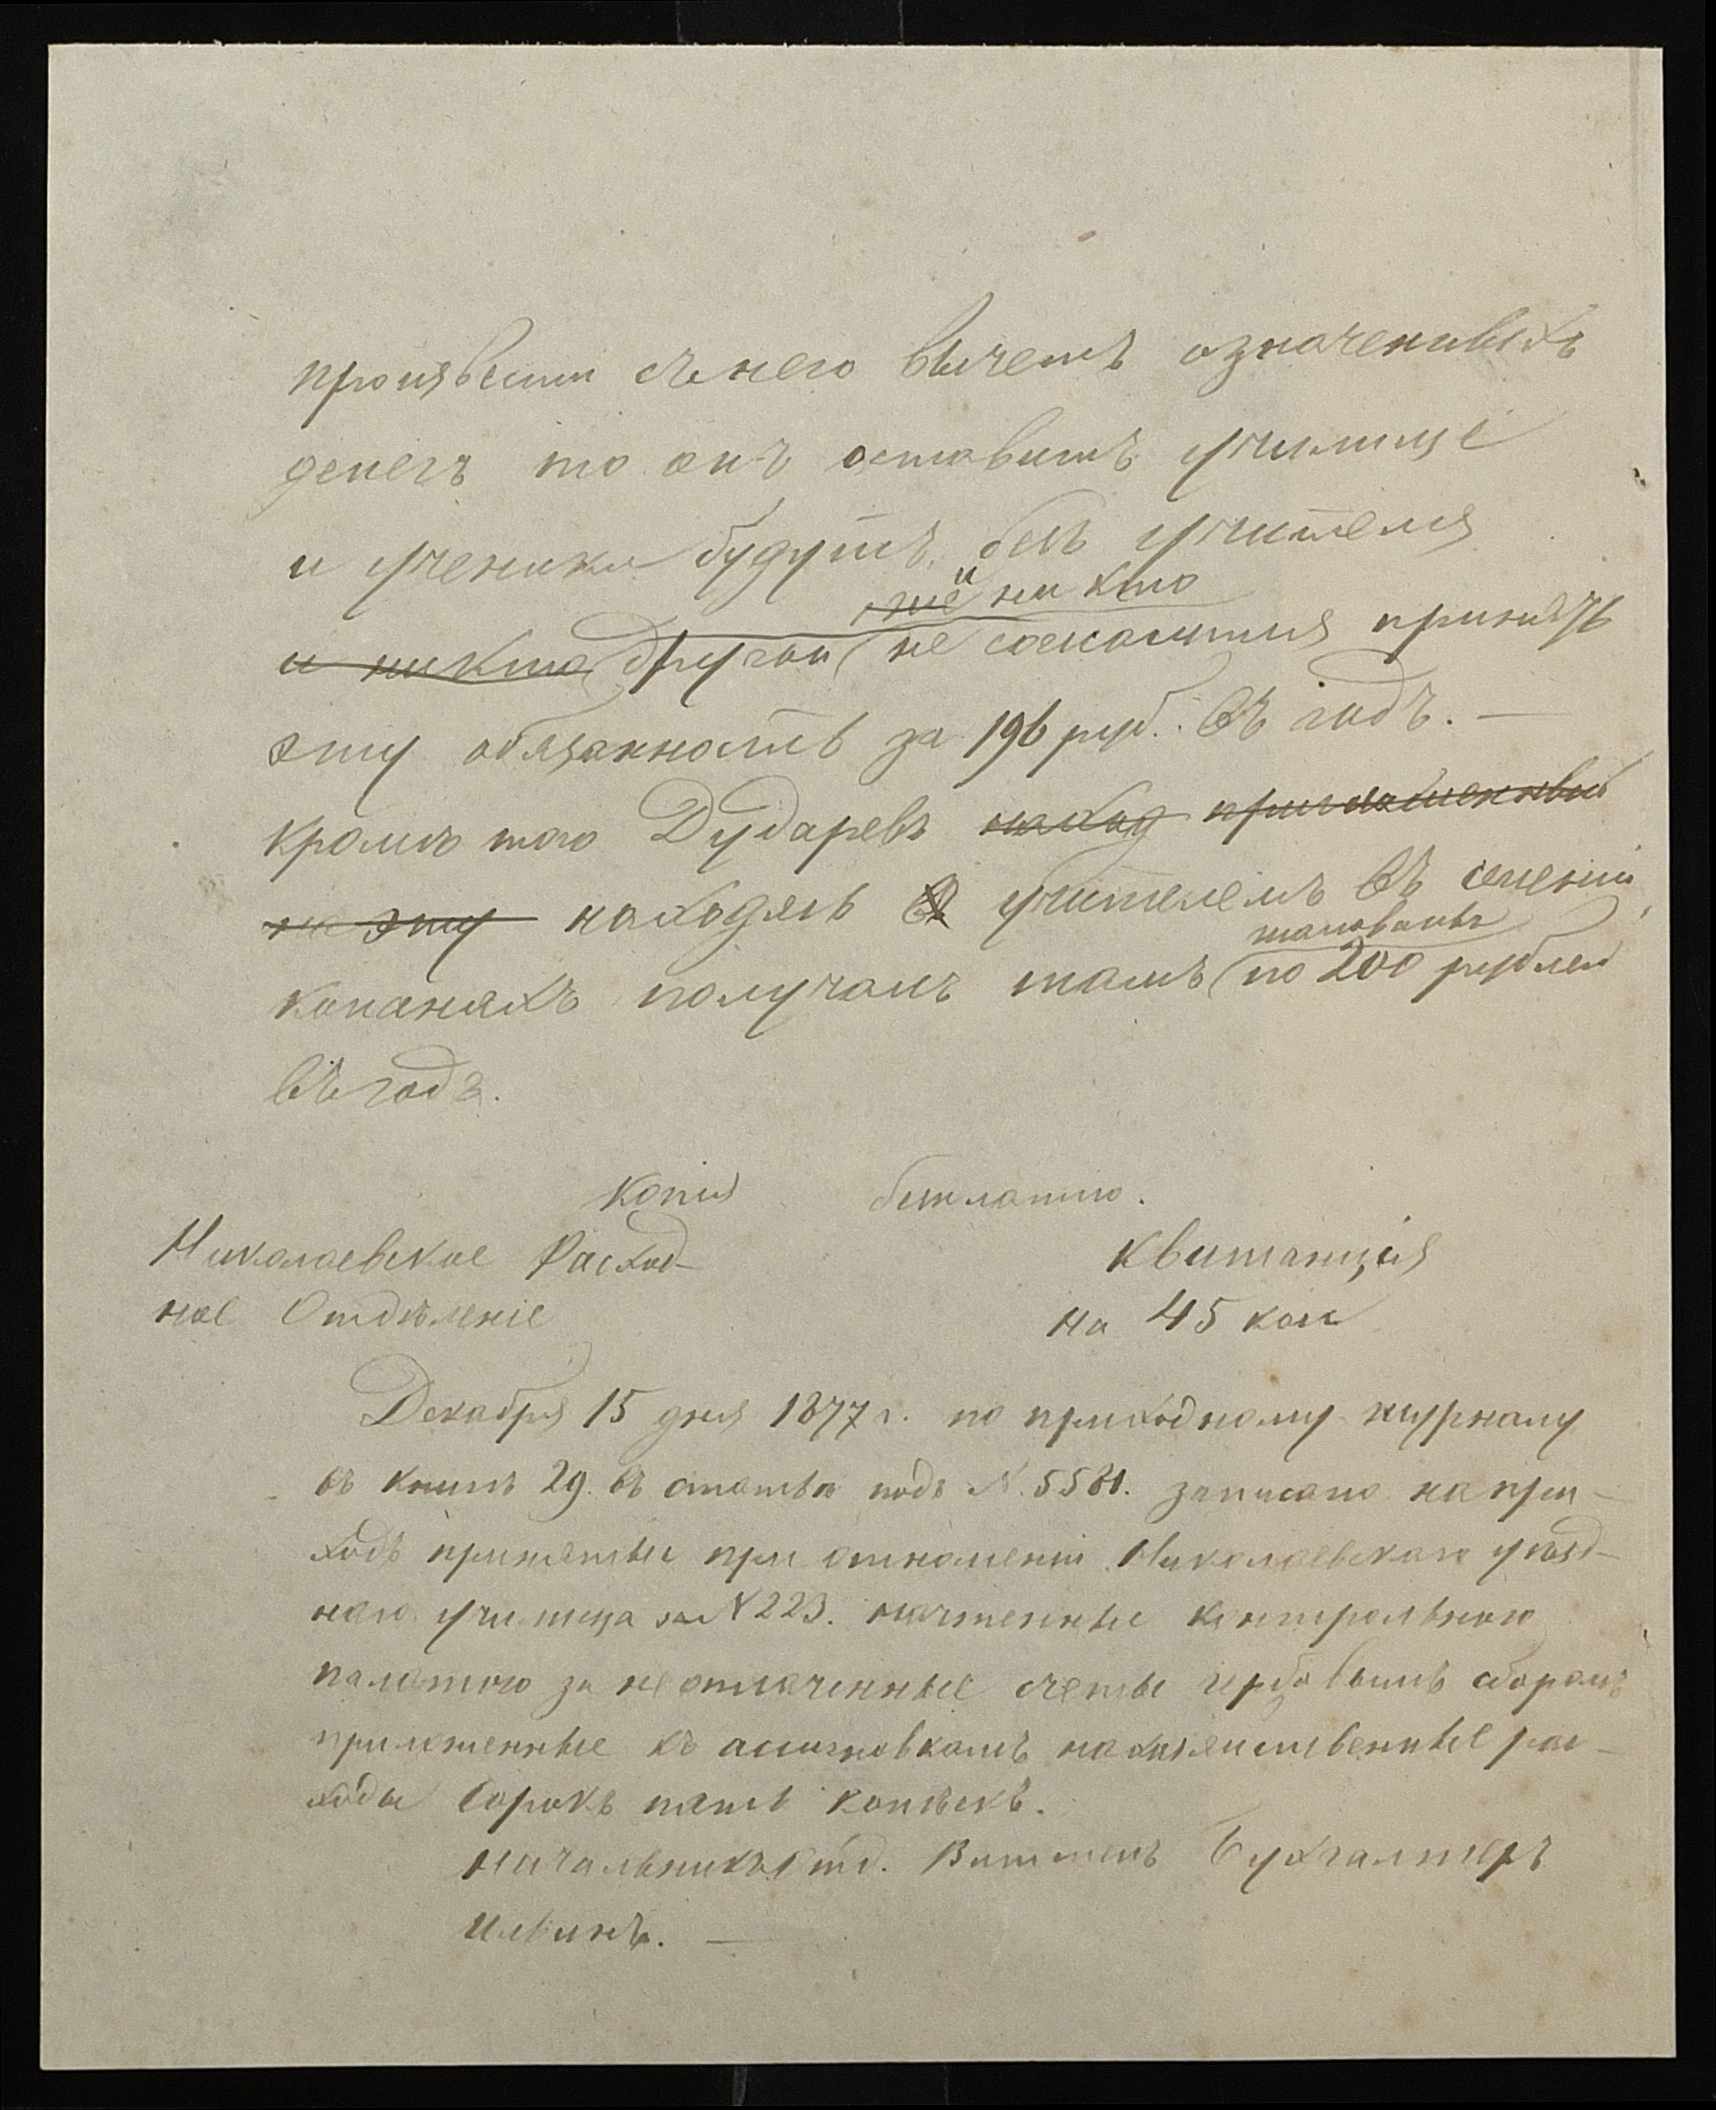 произвести съ него вычетъ означенныхъ
денегъ то онъ оставитъ училище
и ученики будутъ безъ учителя
же и ни кто
и никто другой не согласится принять
эту обязанность за 196 руб. въ годъ. —
кромѣ того Дударевъ наход приглашенный
на эту находясь въ учителемъ въ селеніи
жалованья
Копаняхъ получалъ тамъ по 200 рублей
въ годъ.
Копія безплатно.
Николаевское Расход- Квитанція
ное Отдѣленіе на 45 коп
Декабря 15 дня 1877 г. по приходному журналу
въ книгѣ 29. въ статьѣ подъ N. 5581. записано на при-
ходъ принятые при отношеніи Николаевскаго уѣзд-
наго училища за N 223. начтенные контрольною
палатою за неоплаченные счеты гербовымъ сборомъ
приложенные къ ассигновкамъ на хозяйственные рас-
ходы сорокъ пять копѣекъ.
Начальникъ Отд. Бухгалтеръ
Ильинъ. —